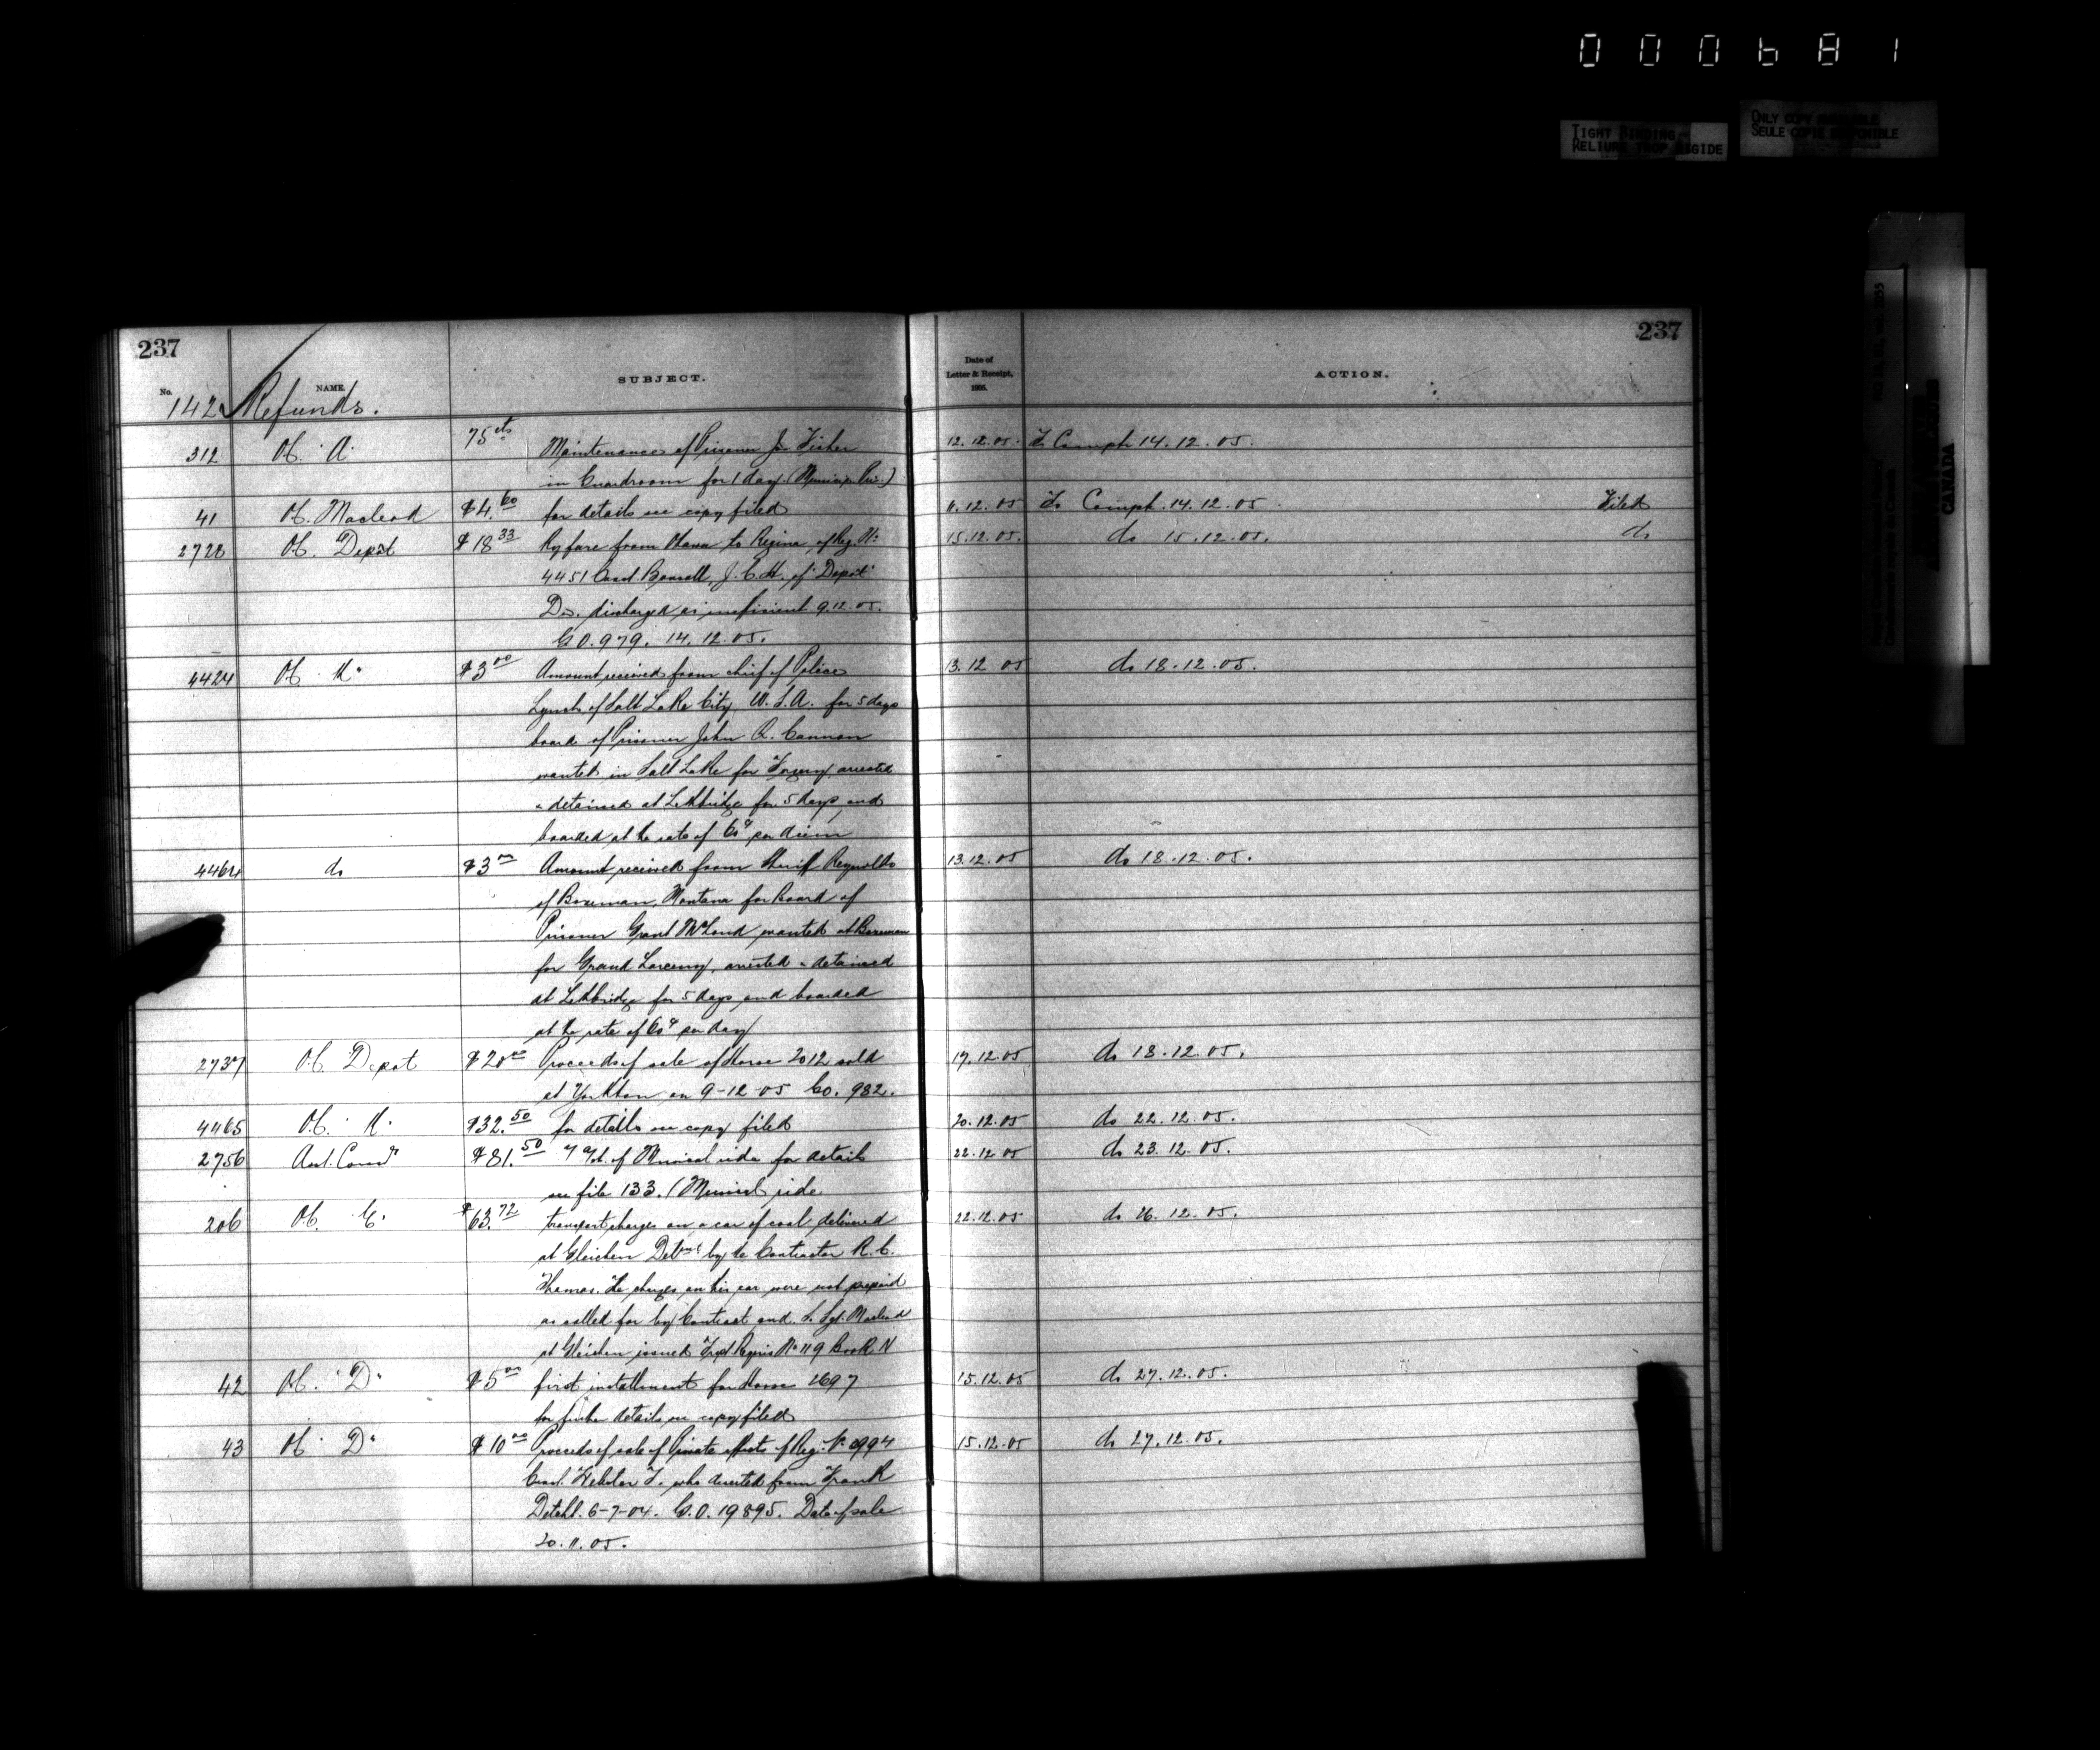 000681
TIGHT BINDING
RELIURE TROP RIGIDE
ONLY COPY AVAILABLE
SEULE COPIE DISPONIBLE
CANADA
237 237
No. NAME. SUBJECT. Date of Letter & Receipt, 1905. ACTION.
142 Refunds.
312 Of. "A" 75cts Maintenance of Prisoner Jn Fisher 12.12.05. To Compt 14.12.05.
in Guardroom for 1 day.
41 Of. Macleod $4.60 for details see copy filed 6.12.05 To Compt. 14.12.05 Filed
2728 Of. Depôt $18.33 Ry fare from Ottawa to Regina of Reg. No: 15.12.05. do 15.12.05. do
4451 Const. Bonsell, J.C.H. of "Depôt"
Dn. discharged as inefficient 9.12.05.
G.O. 979. 14.12.05.
4424 Of. "K" $3.00 Amount received from chief of Police 13.12 05 do 18.12.05.
Lynch of Salt Lake City, U.S.A. for 5 days
board of Prisoner John Q. Cannon
wanted in Salt Lake for Forgery, arrested
& detained at Lethbridge for 5 days, and
boarded at the rate of 60¢ per diem
4464 do $3.00 Amount received from Sheriff Reynolds 13.12.05 do 18.12.05.
of Bozeman, Montana for Board of
Prisoner Grant McLoud wanted at Bozeman
for Grand Larceny, arrested & detained
at Lethbridge for 5 days and boarded
at the rate of 60¢ per day
2737 Of. Depot $20.00 Proceeds of sale of Horse 2012 sold 17.12.05 do 18.12.05.
at Yorkton on 9-12-05 G.O. 982.
4465 Of. "K" $32.50 for details see copy filed 20.12.05 do 22.12.05.
2756 Asst. Commr $81.50 of Musical ride for details 22.12 05 do 23.12.05.
see file 133. (Musical ride
206 Of. "E" $63.72 transport charges on a car of coal delivered 22.12.05 do 26.12.05.
at Gleichen Detmt by the Contractor R. C.
Thomas. The charges on his car were not prepaid
as called for by Contract and S. Sgt. Macleod
at Gleichen issued Tpt Requis No 119 Book N
42 Of. "D" $5.00 first installment for Horse 2697 15.12.05 do 27.12.05.
for further details see copy filed
43 Of "D" $10.00 Proceeds of sale of Private effects of Reg. No 3994 15.12.05 do 27.12.05.
Const. Webster F. who deserted from Frank
Detcht. 6-7-04. G.O. 19895. Date of sale
20.11.05.